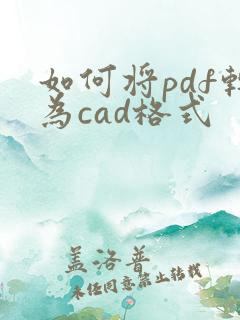 如何将pdf
为cad格式
盖洛普
未经同意禁止转载